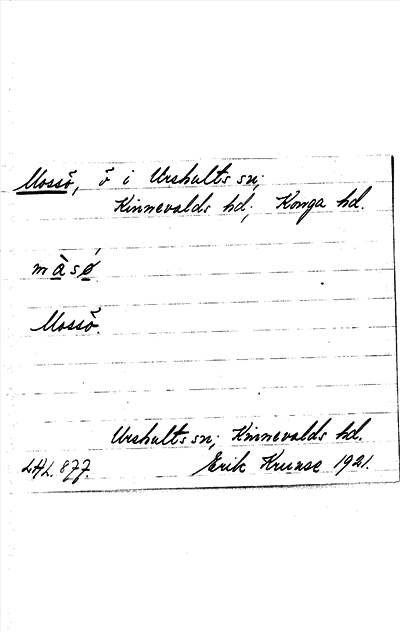 Mossö, ö i Urshults sn;
Kinnevalds hd; Konga hd.
màsø
Mossö.
Urshults sn; Kinnevalds hd.
LHL. 877. Erik Kruuse 1921.